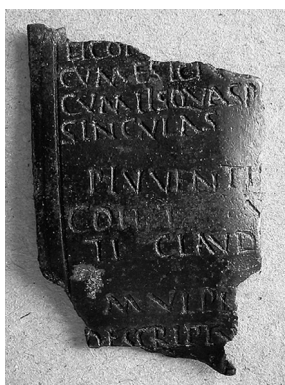 ET CO
CVM EST CI
CVM IIS QVAS P
SINCVLAS
P IVVENTI
COH I
TI CLAVD
M VLPI
DESCRIPT